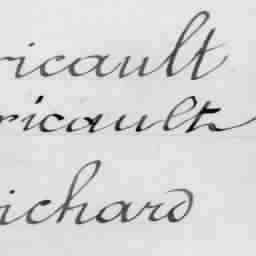 ricault
ricault
ichard